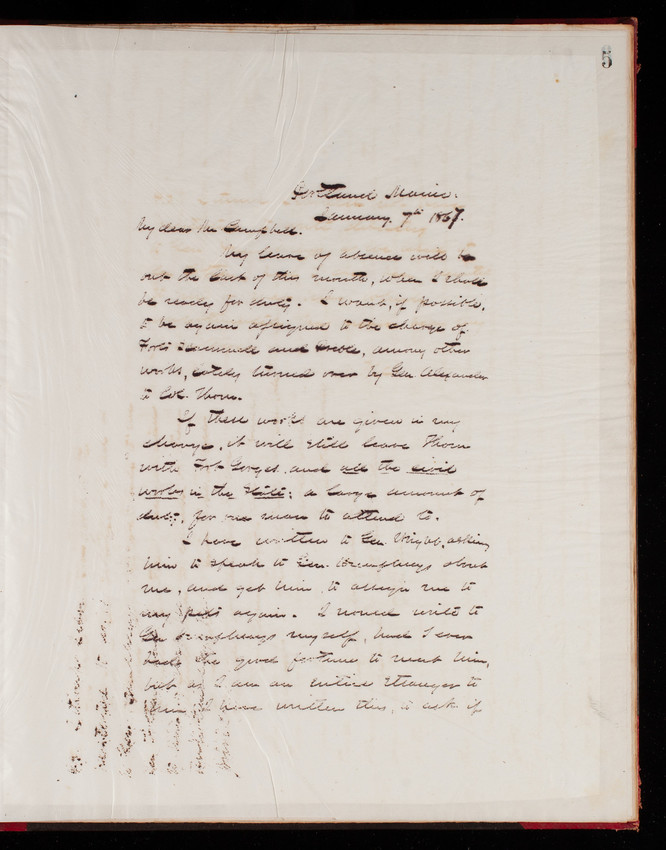 5
Portland Maine.
January 7th 1867.
My dear Mr Campbell.
My leave of absence will be
out the last of this month, when I shall
be ready for duty. I want, if possible,
to be again assigned to the charge of
Forts Scammell and Preble, among other
works, lately turned over by Gen Alexander
to Col. Thom.
If these works are given in my
charge, it will still leave Thom
with Fort Gorges and all the civil
works in the State; a large amount of
duty, for one man to attend to.
I have written to Gen. Wright, asking
him to speak to Gen. Humphreys about
me, and get him to assign me to
my forts again. I would write to
Gen Humphreys myself, had I ever
had the good fortune to meet him,
but as I am an entire stranger to
him I have written this, to ask if